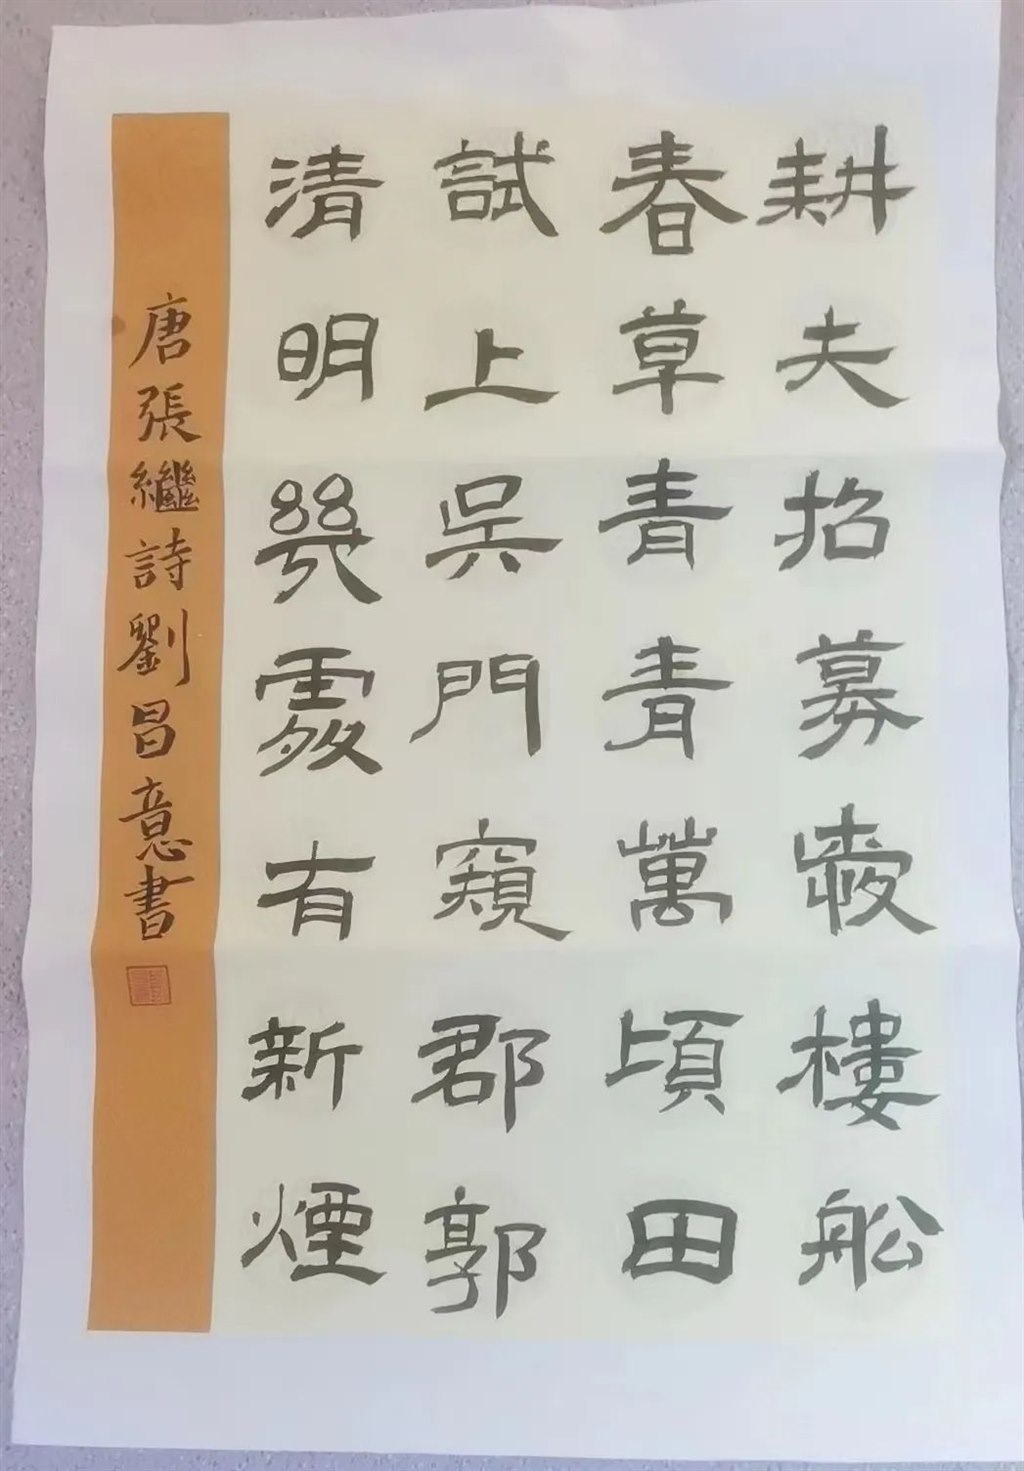 耕夫招募樓舩
春草青青萬頃田
試上吴門窺郡郭
清明幾處有新煙
唐張繼詩劉昌意書